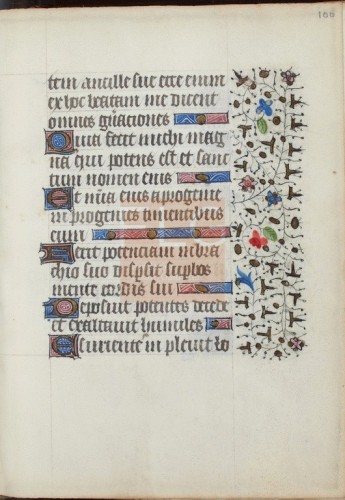 166
tem ancille sue ecce enim
ex hoc beatam me dicent
omnes gnaciones
Quia fecit michi mag
na qui potens est et sanc
tum nomen eius
Et mia eius a progenie
in progenies timentibus
eum
Fecit potenciam in bra
chio suo dispsit supbos
mente cordis sui
Deposuit potentes de sede
et exaltauit humiles
Esurientes in pleuit bo